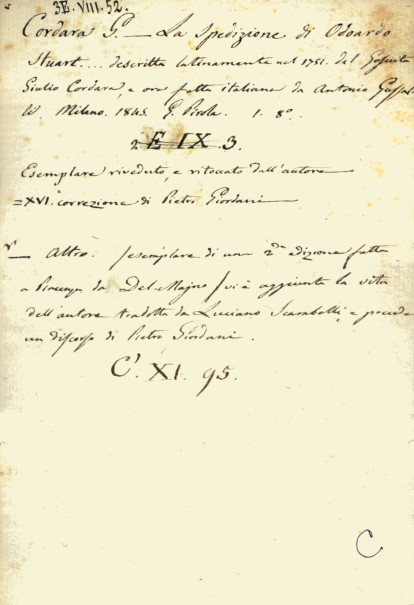 3E.VIII.52.
Cordara G. — La Spedizione di Odoardo
Stuart... descritta latinamente nel 1751. dal Gesuita
Giulio Cordara, e ora fatta italiana da Antonio
Milano. 1845. G. Pirola. 1. 8°.
2. E IX 3.
Esemplare riveduto, e ritoccato dall'autore
= XVI. correzione di Pietro Giordani =
— Altro. esemplare di una 2.da edizione fatta
a Piacenza da Del-Majno vi è aggiunta la vita
dell'autore tradotta da Luciano Scarabelli, e precede
un discorso di Pietro Giordani.
C. XI. 95.
C